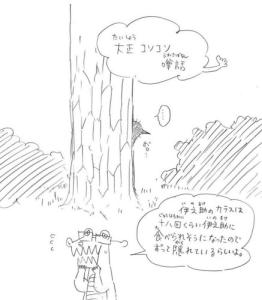 たいしょう
大正 コソコソ
うわさばなし
噂話
お。
伊之助のカラスは
十八回くらい伊之助に
食べられそうになったので
ずっと隠れているらしいよ。